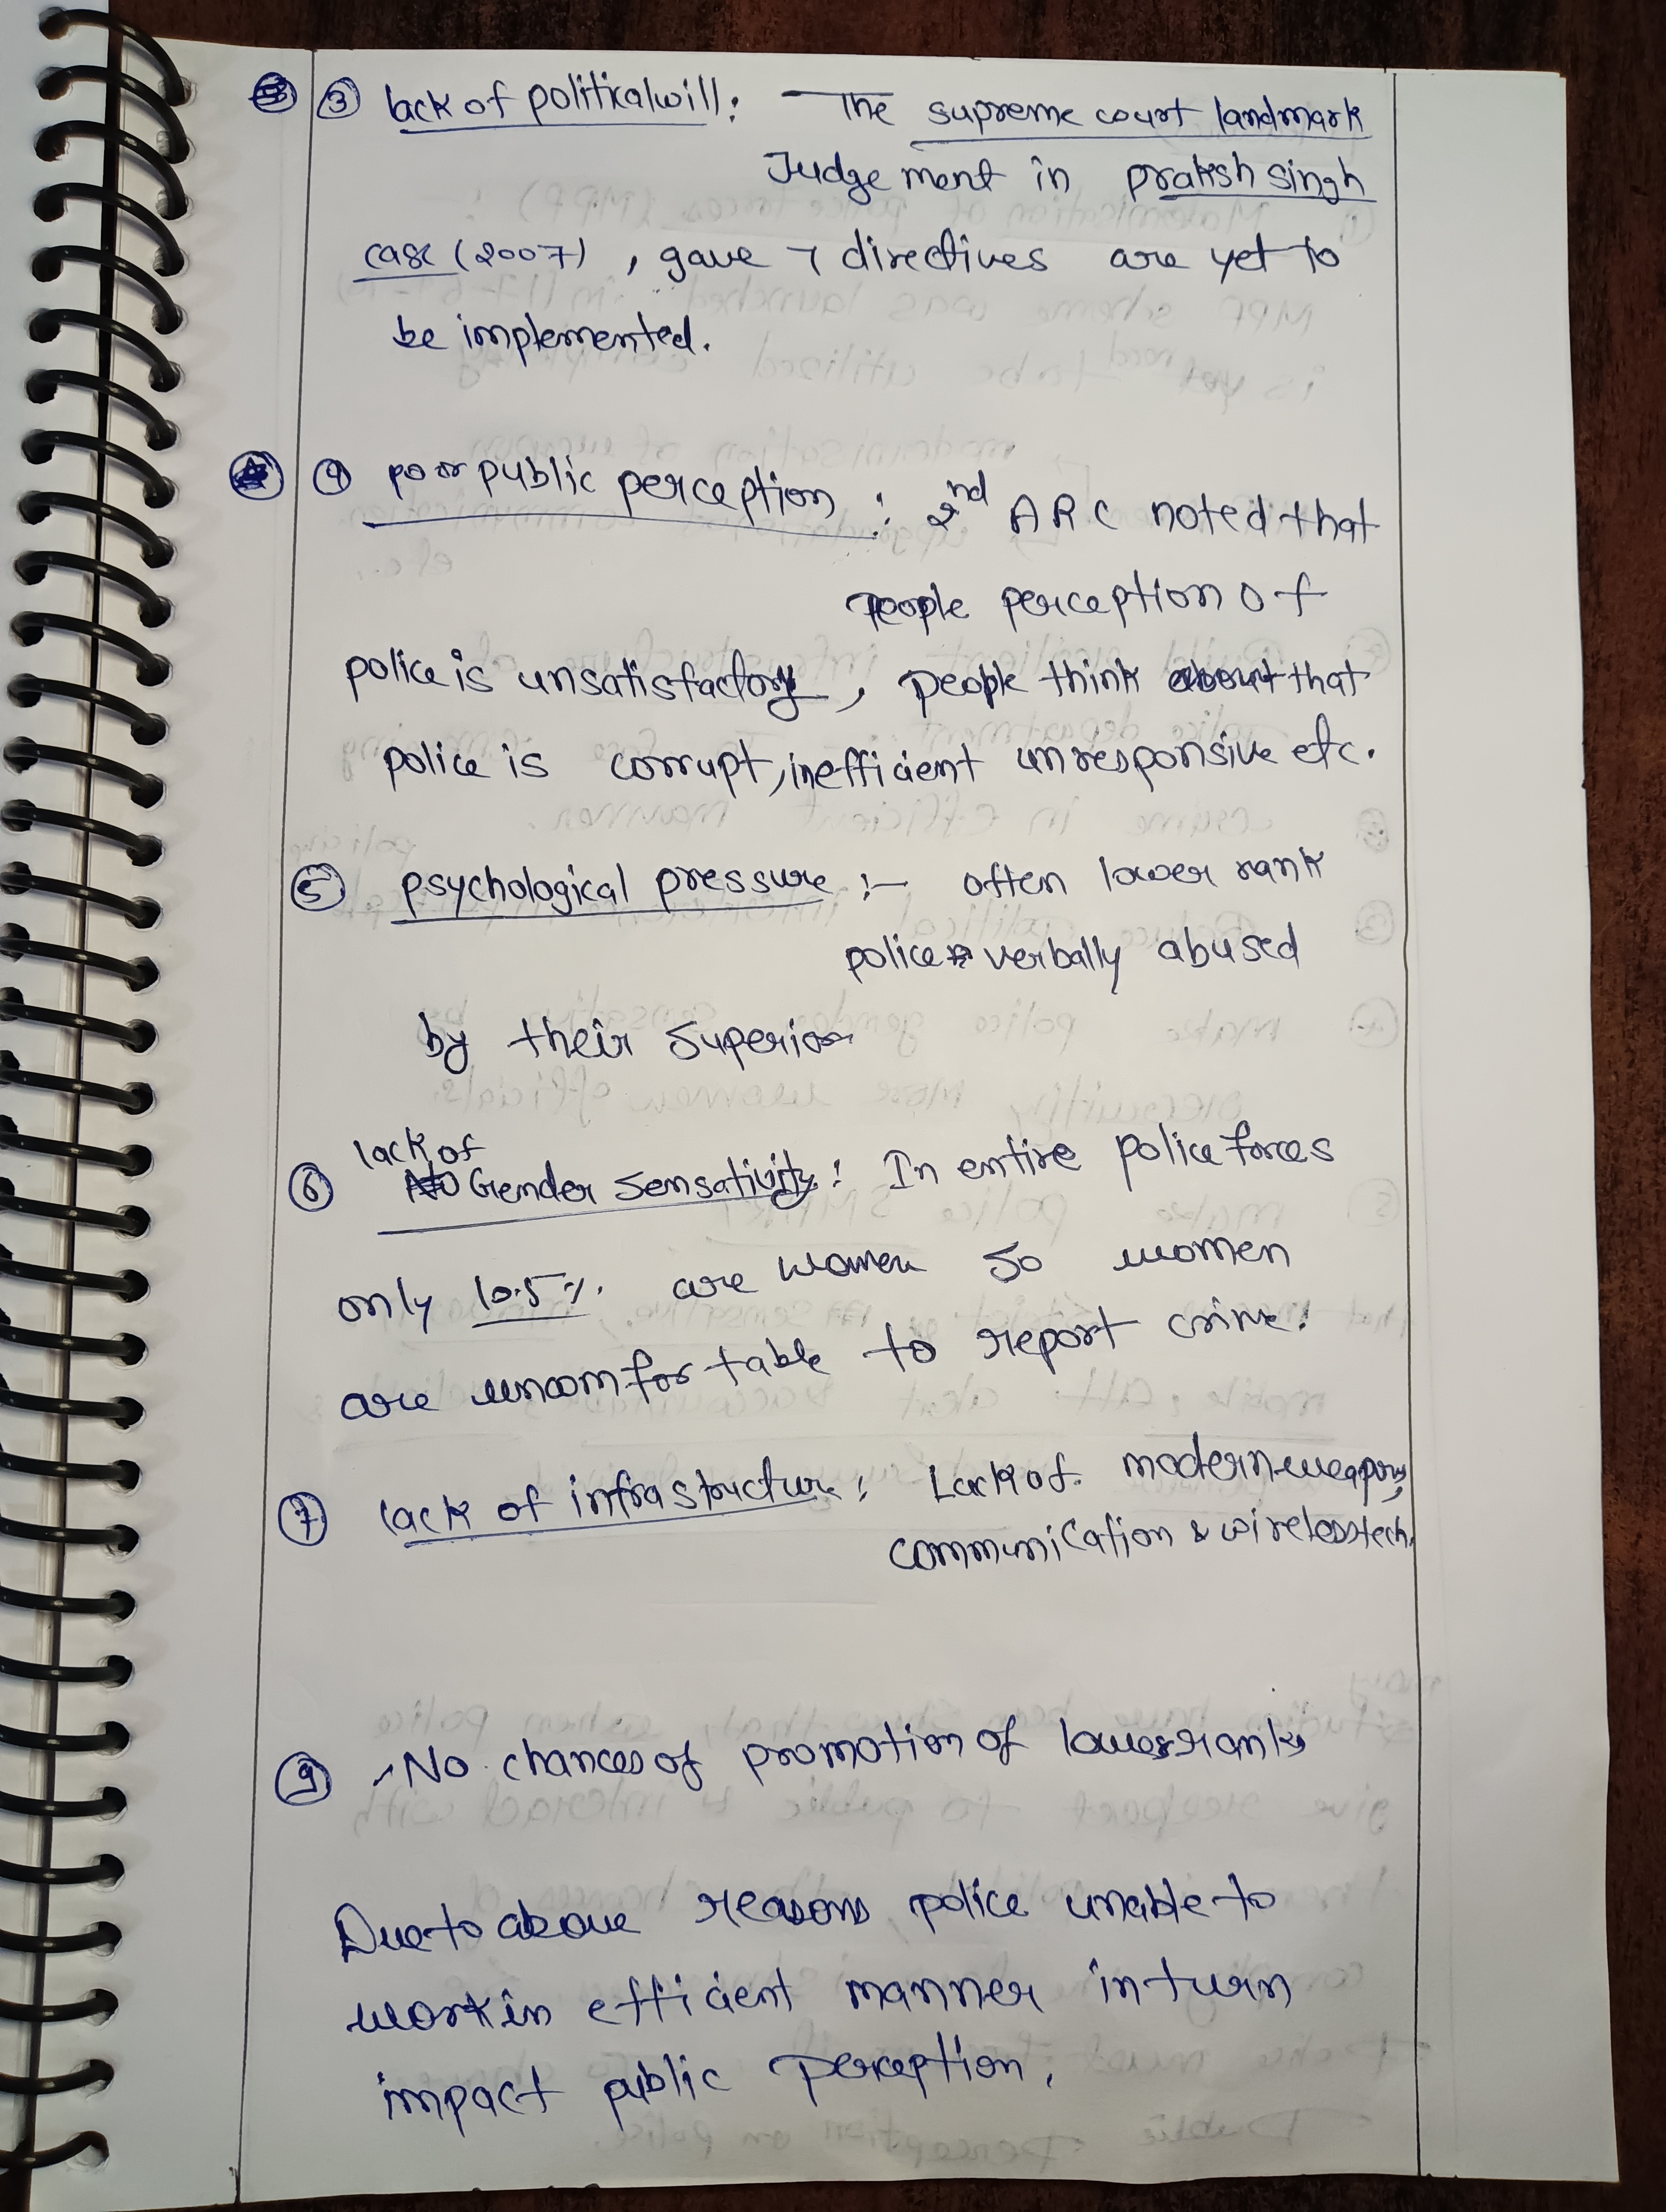 ③ lack of political will: The supreme court landmark
Judgement in praksh singh
case (2007), gave 7 directives are yet to
be implemented.
④ poor public perception: 2nd ARC noted that
people perception of
police is unsatisfactory, people think about that
police is corrupt, inefficient unresponsive etc.
⑤ psychological pressure :- often lower rank
police verbally abused
by their superior
lack of
⑥ Gender sensativity: In entire police forces
only 10.5% are women so women
are uncomfortable to report crime.
⑦ lack of infrastructure: Lack of modern weapons,
communication & wireless tech.
⑨ No chances of promotion of lower ranks
Due to above reasons police unable to
work in efficient manner in turn
impact public perception.